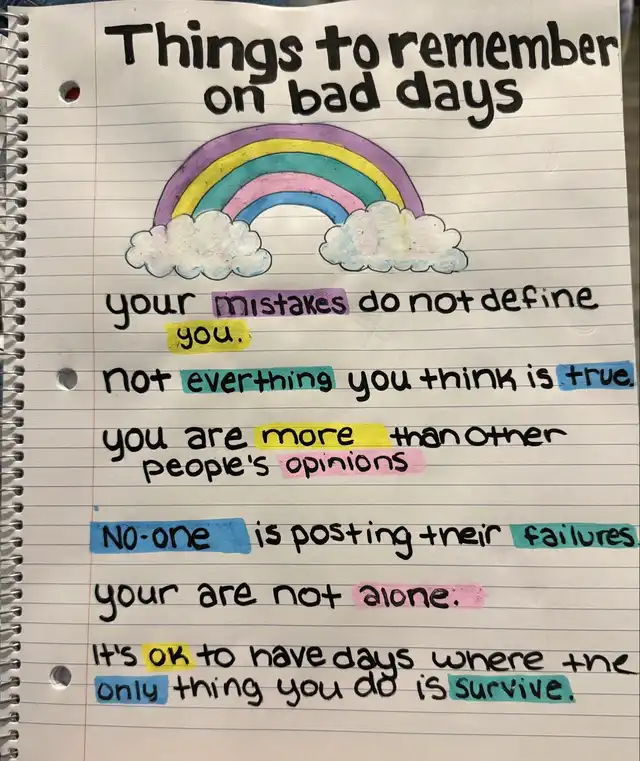 Things to remember
on bad days
your mistakes do not define
you.
not everthing you think is true.
you are more than other
people's opinions
No-one is posting their failures
your are not alone.
It's ok to have days where the
only thing you do is survive.